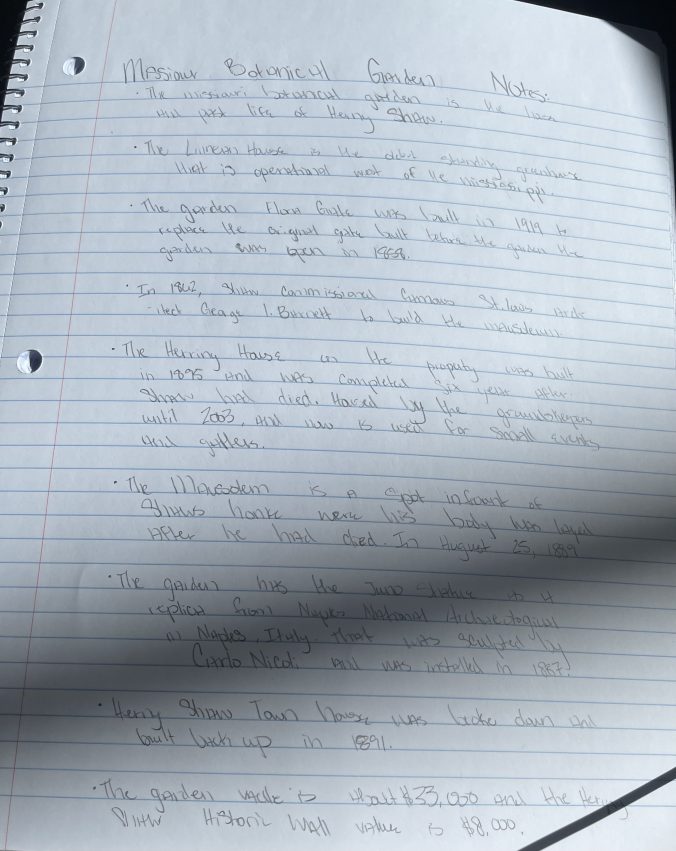 Missiour Botanical Garden Notes:
· The missouri botanical garden is the
and past life of Henry Shaw.
· The Linnean House is the oldest standing greenhouse
that is operational west of the mississippi.
· The garden Floor Gate was built in 1919 to
replace the original gate built before the garden the
garden was open in 1858.
· In 1862, Shaw Commissional famous St. Louis Archi
-itect George I. Barnett to build the mausoleum
· The Herring House on the property was built
in 1895 and was completed six year after
Shaw had died. Hosed by the groundskeepers
until 2003, and now is used for small events
and
· The Mausoleum is a spot infront of
Shaws home were his body was layed
After he had died. In August 25, 1889
· The garden has the Juno Statue is a
replica from Naples National Archaeological
in Naples, Italy that was sculpted by
Carlo Nicoli and was installed in 1887.
· Henry Shaw Town house was broke down and
built back up in 1891.
· The garden value is about $33,000 and the Henry
Shaw Historic Wall value is $8,000.